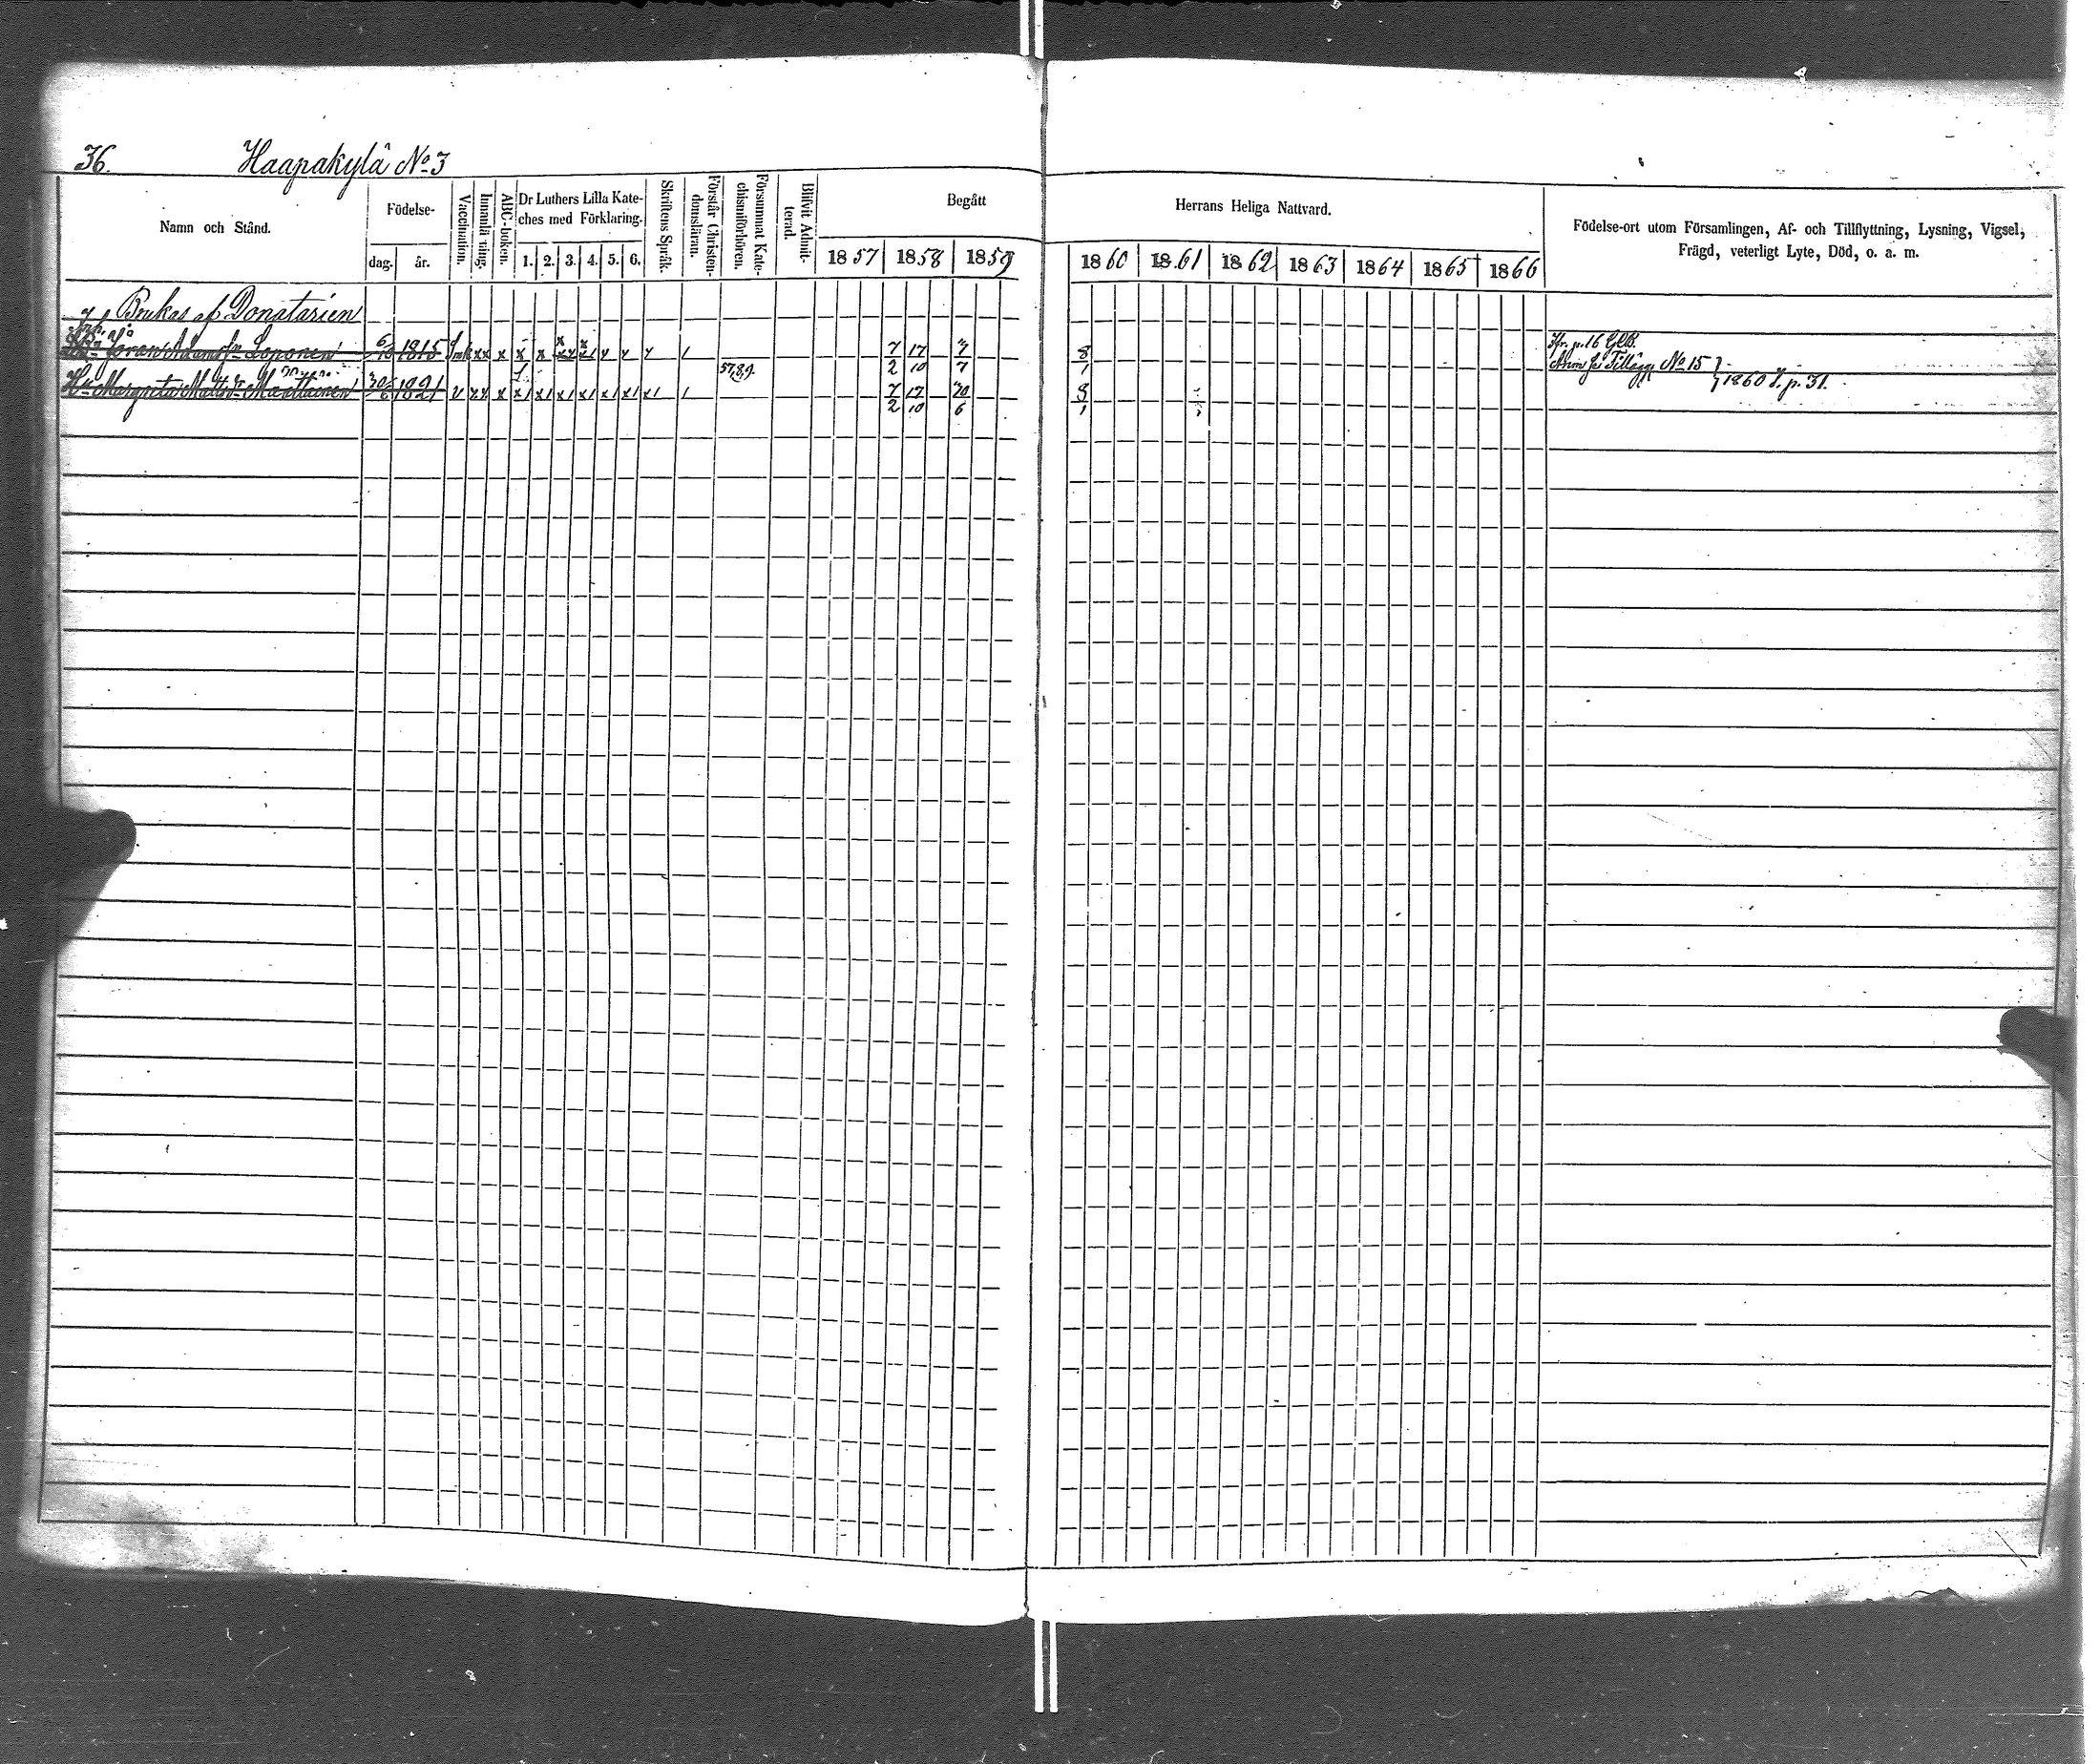 36. Haapakylä No 3
Namn och Stånd.
Födelse-
dag. år.
Vaccination.
Innanläsning.
ABC-boken.
Dr Luthers Lilla Kate-
ches med Förklaring.
1. 2. 3. 4. 5. 6.
Skriftens Språk.
Förstår Christen-
domsläran.
Försummat Kate-
chismiförhören.
Blifvit Admit-
terad.
Begått
1857 1858 1859
Herrans Heliga Nattvard.
1860 1861 1862 1863 1864 1865 1866
Födelse-ort utom Församlingen, Af- och Tillflyttning, Lysning, Vigsel,
Frägd, veterligt Lyte, Död, o. a. m.
Brukas af Donatarien
Göran Adamsson Loponen 6/10 1815 x x x x 1 7/2 17/10 7/7 8/1 p. 16
57,8,9. Tillägg No 15
Hu Margreta Matts dr Martikainen 30/6 1821 v x x x x1 x1 x1 x1 x1 x1 x1 1 7/2 17/10 20/6 8/1 1860 p. 31.